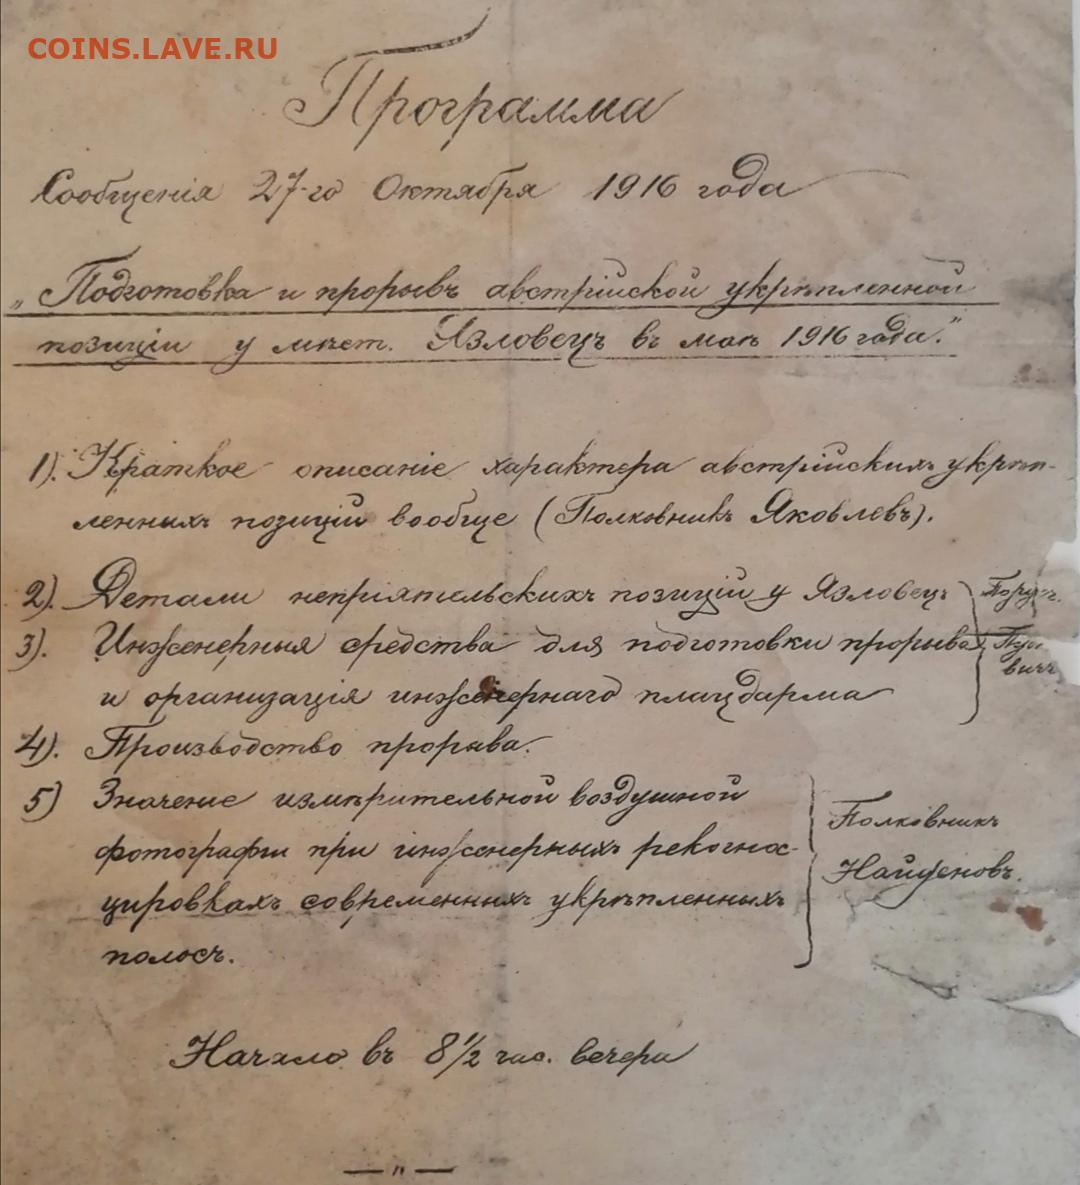 COINS.LAVE.RU
Программа
Сообщенія 27-го Октября 1916 года
„Подготовка и прорывъ австрійской укрѣпленной
позиціи у мѣст. Язловецъ въ маѣ 1916 года."
1). Краткое описаніе характера австрійскихъ укрѣп-
ленныхъ позицій вообще (Полковникъ Яковлевъ).
2). Детали непріятельскихъ позицій у Язловецъ
3). Инженерныя средства для подготовки прорыва
и организація инженернаго плацдарма
4). Производство прорыва.
5) Значеніе измѣрительной воздушной
фотографіи при инженерныхъ рекогнос-
цировкахъ современныхъ укрѣпленныхъ
полосъ.
Полковникъ
Найденовъ.
Начало въ 8½ час. вечера
— „ —